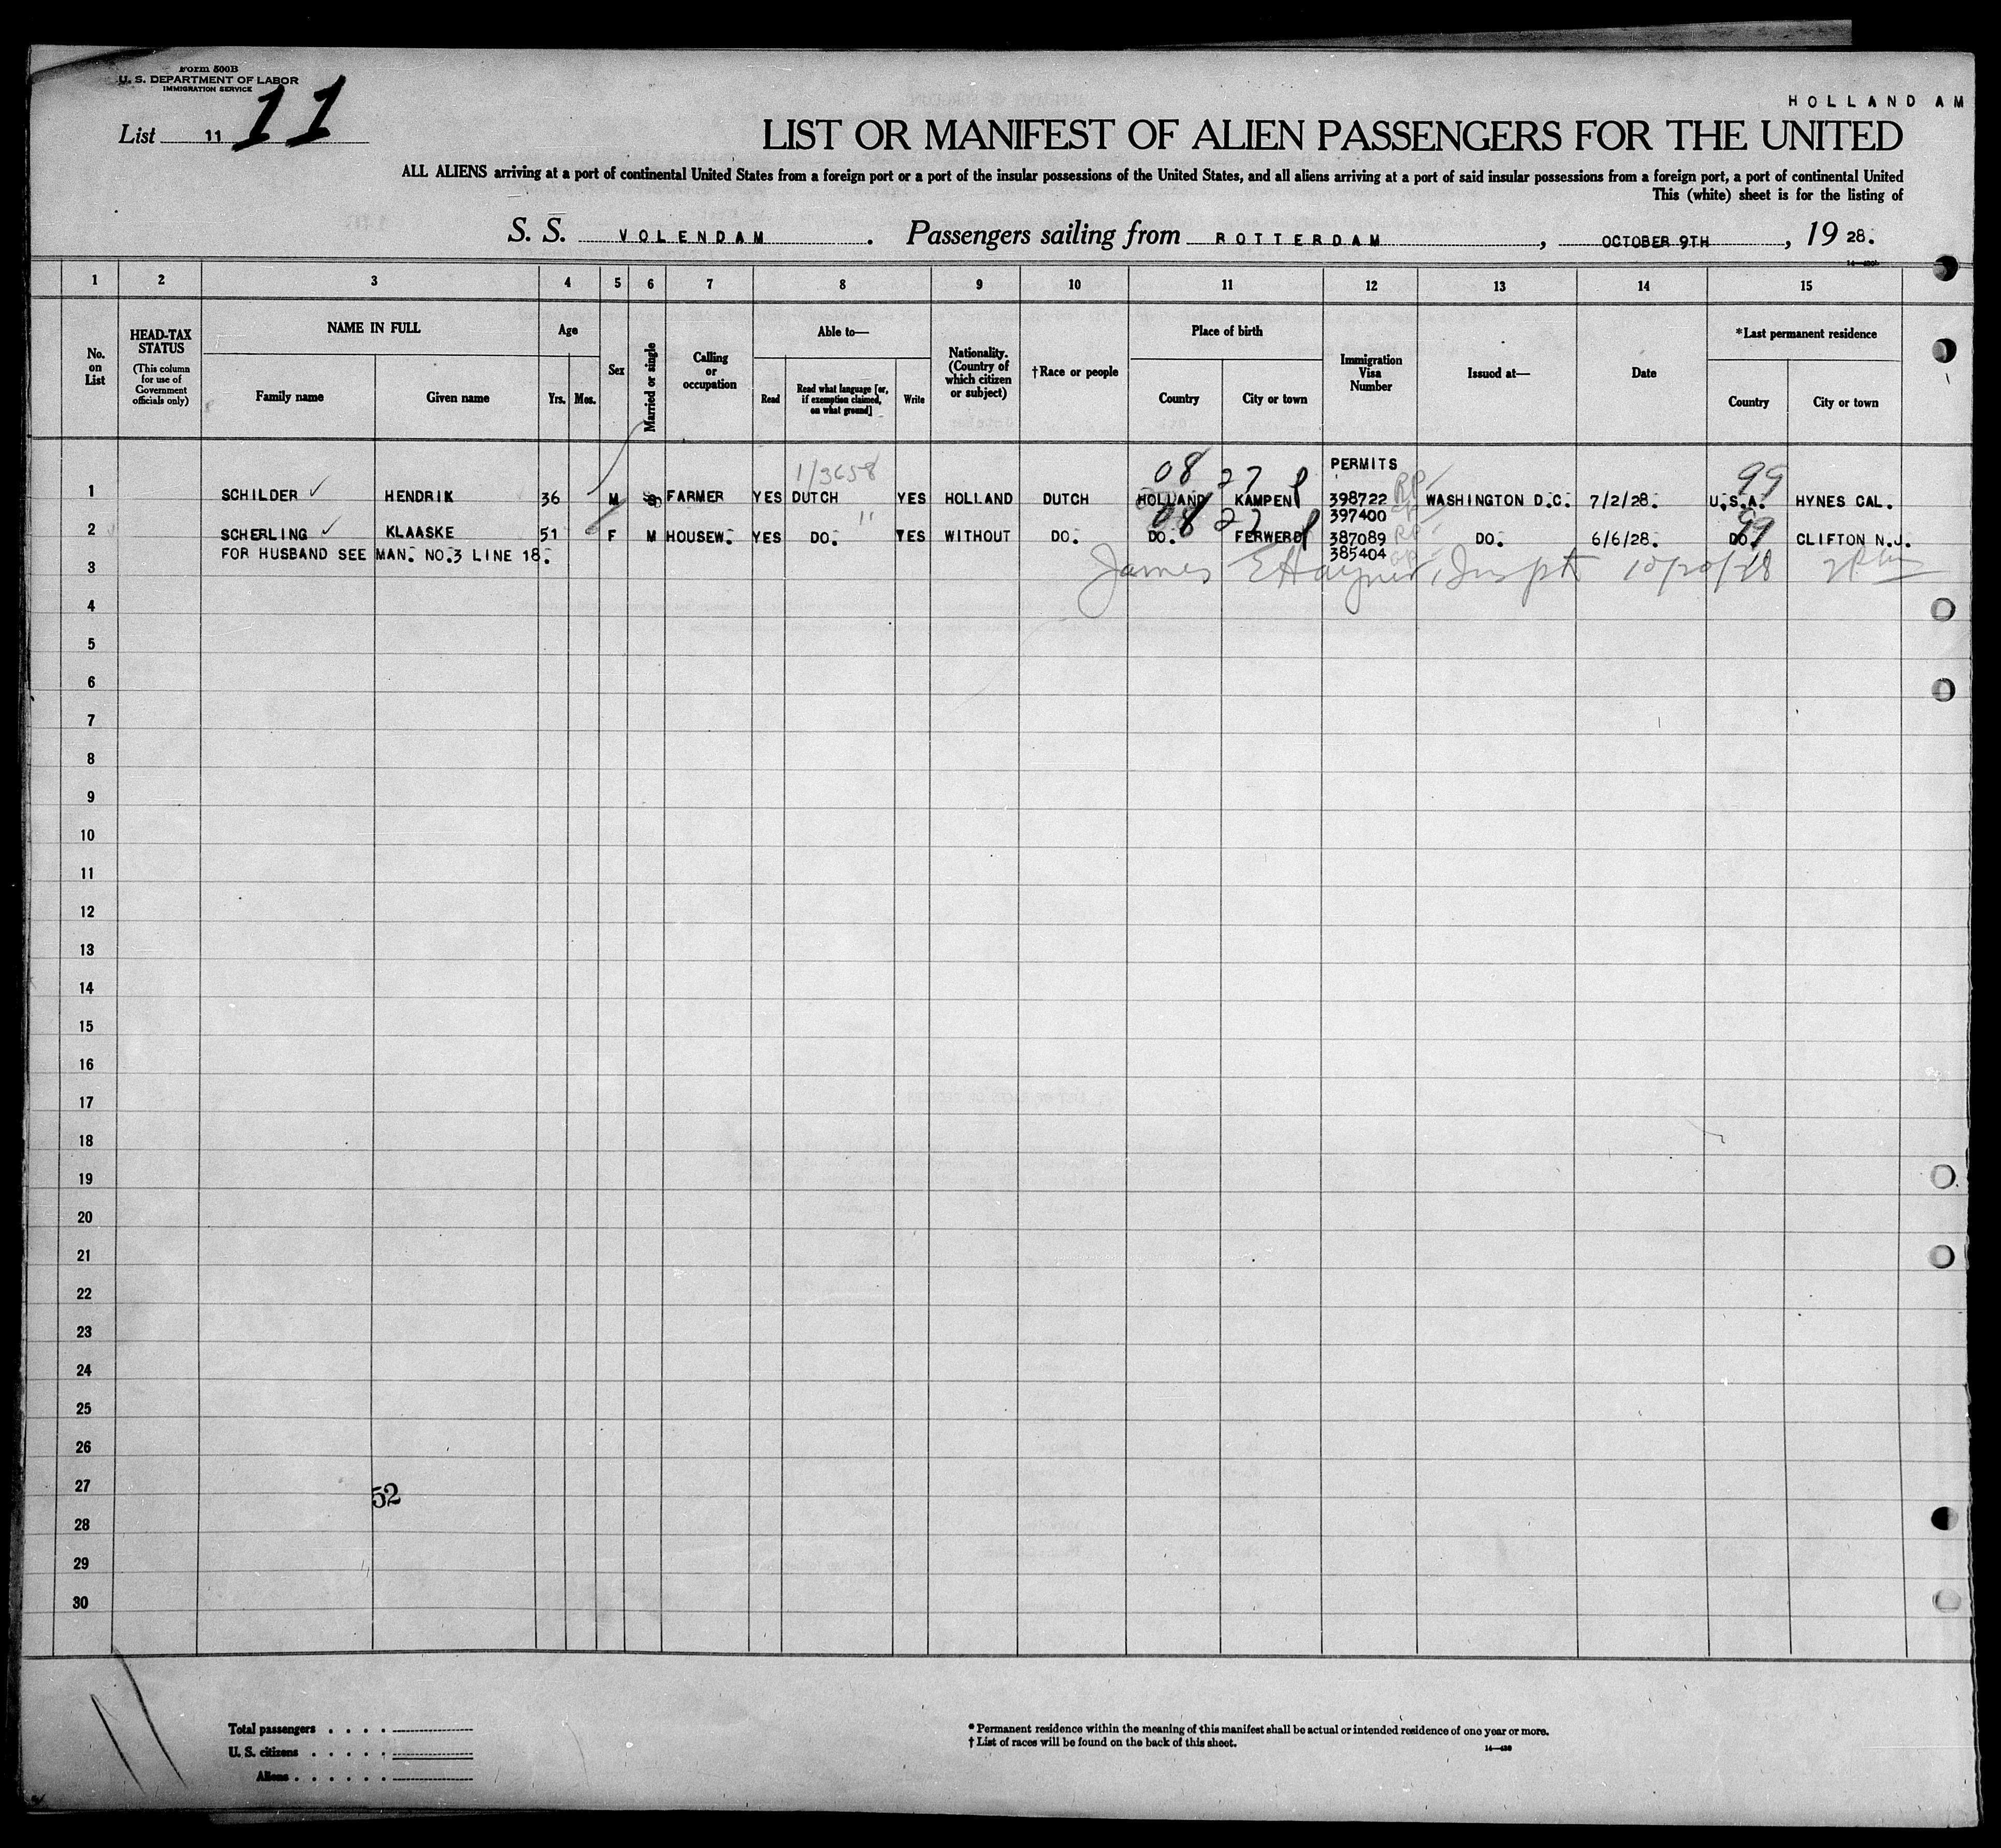 Form 500B
U. S. DEPARTMENT OF LABOR
IMMIGRATION SERVICE
List 11 11
HOLLAND AM
LIST OR MANIFEST OF ALIEN PASSENGERS FOR THE UNITED
ALL ALIENS arriving at a port of continental United States from a foreign port or a port of the insular possessions of the United States, and all aliens arriving at a port of said insular possessions from a foreign port, a port of continental United
This (white) sheet is for the listing of
S. S. VOLENDAM. Passengers sailing from ROTTERDAM, OCTOBER 9TH, 19 28.
1 2 3 4 5 6 7 8 9 10 11 12 13 14 15
No. on List
HEAD-TAX STATUS
(This column for use of Government officials only)
NAME IN FULL
Family name
Given name
Age
Yrs. Mos.
Sex
Married or single
Calling or occupation
Able to—
Read
Read what language [or, if exemption claimed, on what ground]
Write
Nationality. (Country of which citizen or subject)
†Race or people
Place of birth
Country
City or town
Immigration Visa Number
Issued at—
Date
*Last permanent residence
Country
City or town
1/3658 08 27 PERMITS 99
1 SCHILDER ✓ HENDRIK 36 M FARMER YES DUTCH YES HOLLAND DUTCH HOLLAND KAMPEN 398722 RP WASHINGTON D.C. 7/2/28. U.S.A. HYNES CAL.
" 08 27 397400 99
2 SCHERLING ✓ KLAASKE 51 F M HOUSEW. YES DO. YES WITHOUT DO. DO. FERWERD 387089 RP DO. 6/6/28. DO. CLIFTON N.J.
FOR HUSBAND SEE MAN. NO.3 LINE 18. 385404
3 James E Hayner, Inspt 10/20/28
4
5
6
7
8
9
10
11
12
13
14
15
16
17
18
19
20
21
22
23
24
25
26
27
52
28
29
30
Total passengers . . . .
U. S. citizens . . . . .
Aliens . . . . . .
* Permanent residence within the meaning of this manifest shall be actual or intended residence of one year or more.
† List of races will be found on the back of this sheet.